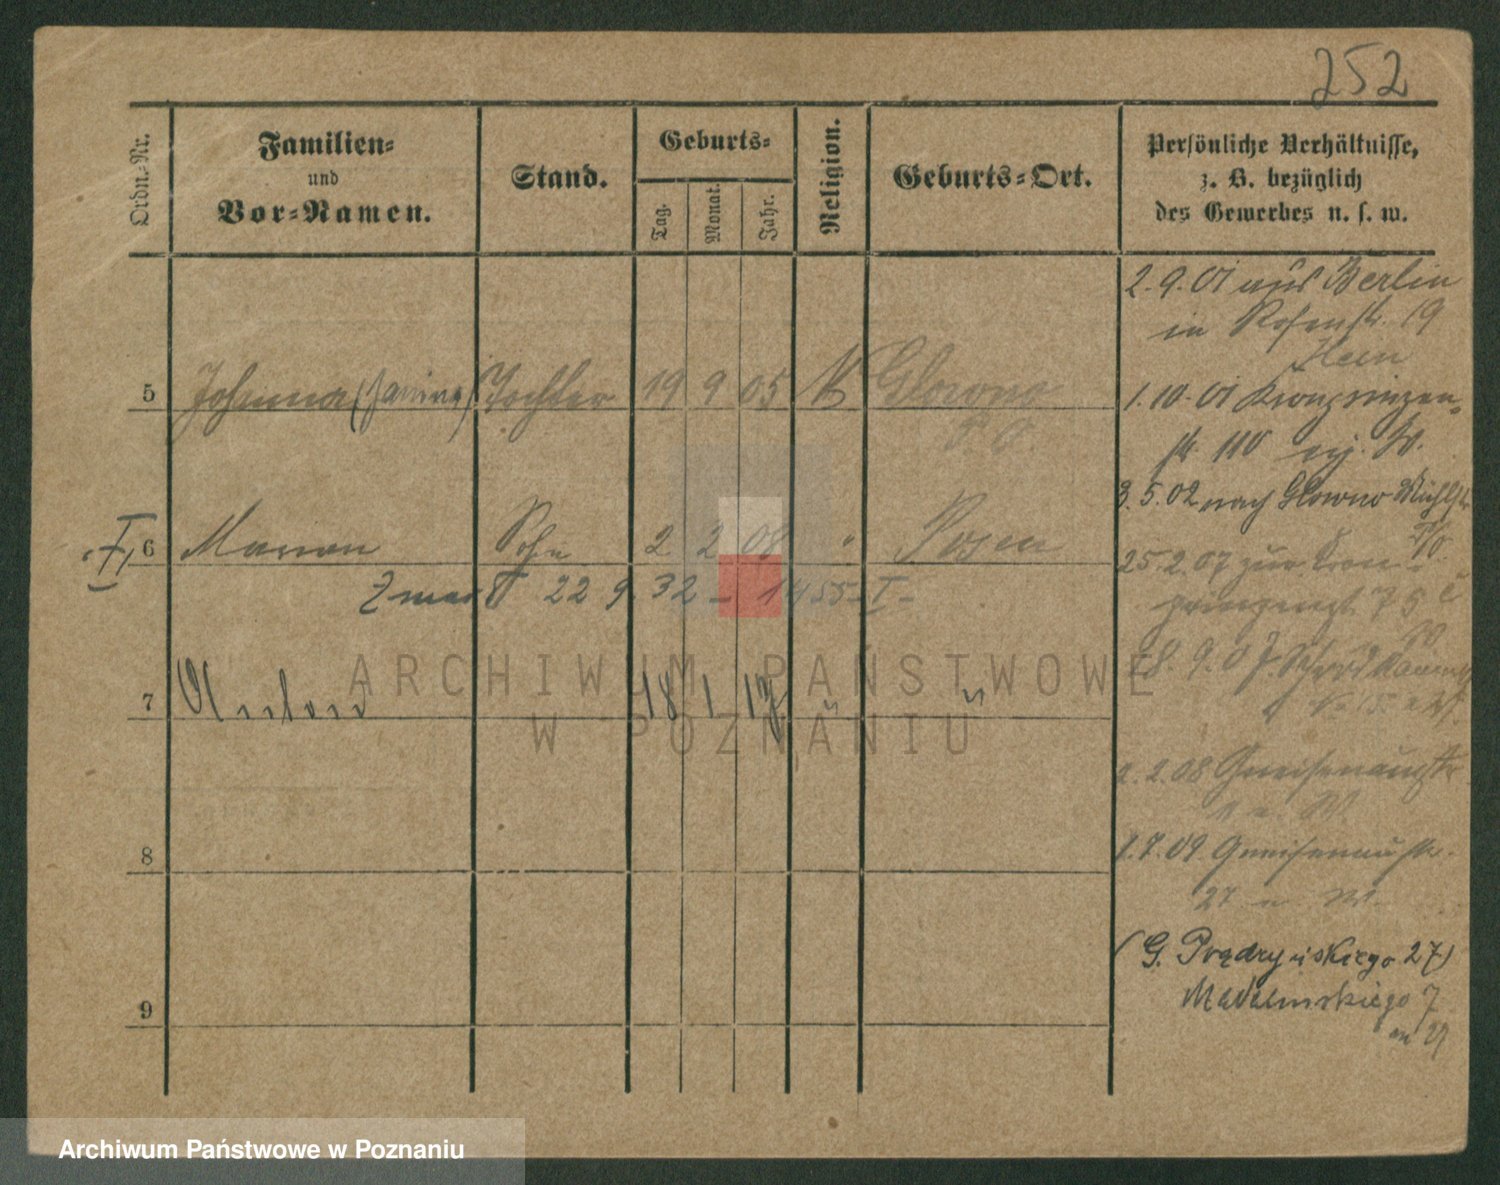 252
Ordn.-Nr.
Familien-
und
Vor-Namen.
Stand.
Geburts-
Tag.
Monat.
Jahr.
Religion.
Geburts-Ort.
Persönliche Verhältnisse,
z. B. bezüglich
des Gewerbes u. s. w.
2. 9. 01 aus Berlin
in Rosenstr. 19
5 Johanna (Janina) Tochter 19 9 05 K Glowno
P. O.
1. 10. 01 Kronprinzen-
str. 110
3. 5. 02 nach Glowno
I
6 Maryan Sohn 2 2 08 " Posen
25. 2. 07 zur Kron-
prinzenstr. 75
Zmarł 22 9. 32 - 1455 - I -
18. 9. 07
7 Antoni 18 1 17 " "
2. 2. 08 Gneisenaustr.
8
1. 7. 09 Gneisenaustr.
27
(G. Prądzyńskiego 27)
9
Madalinskiego 7
Archiwum Państwowe w Poznaniu
ARCHIWUM PAŃSTWOWE
W POZNANIU